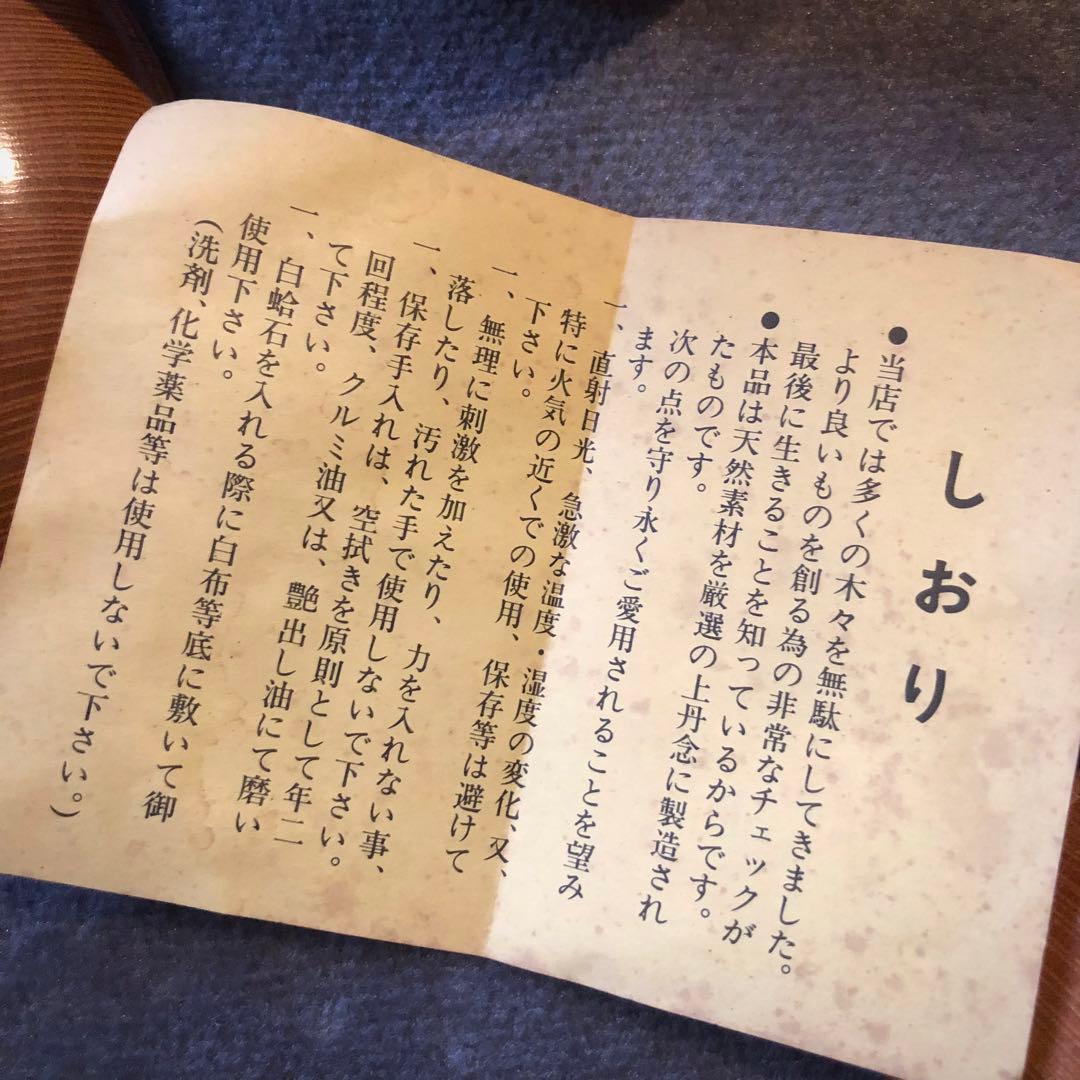 しおり
●当店では多くの木々を無駄にしてきました。
より良いものを創る為の非常なチェックが
最後に生きることを知っているからです。
●本品は天然素材を厳選の上丹念に製造され
たものです。
次の点を守り永くご愛用されることを望み
ます。
一、直射日光、急激な温度・湿度の変化、又、
特に火気の近くでの使用、保存等は避けて
下さい。
一、無理に刺激を加えたり、力を入れない事、
落したり、汚れた手で使用しないで下さい。
一、保存手入れは、空拭きを原則として年二
回程度、クルミ油又は、艶出し油にて磨い
て下さい。
一、白蛤石を入れる際に白布等底に敷いて御
使用下さい。
(洗剤、化学薬品等は使用しないで下さい。)